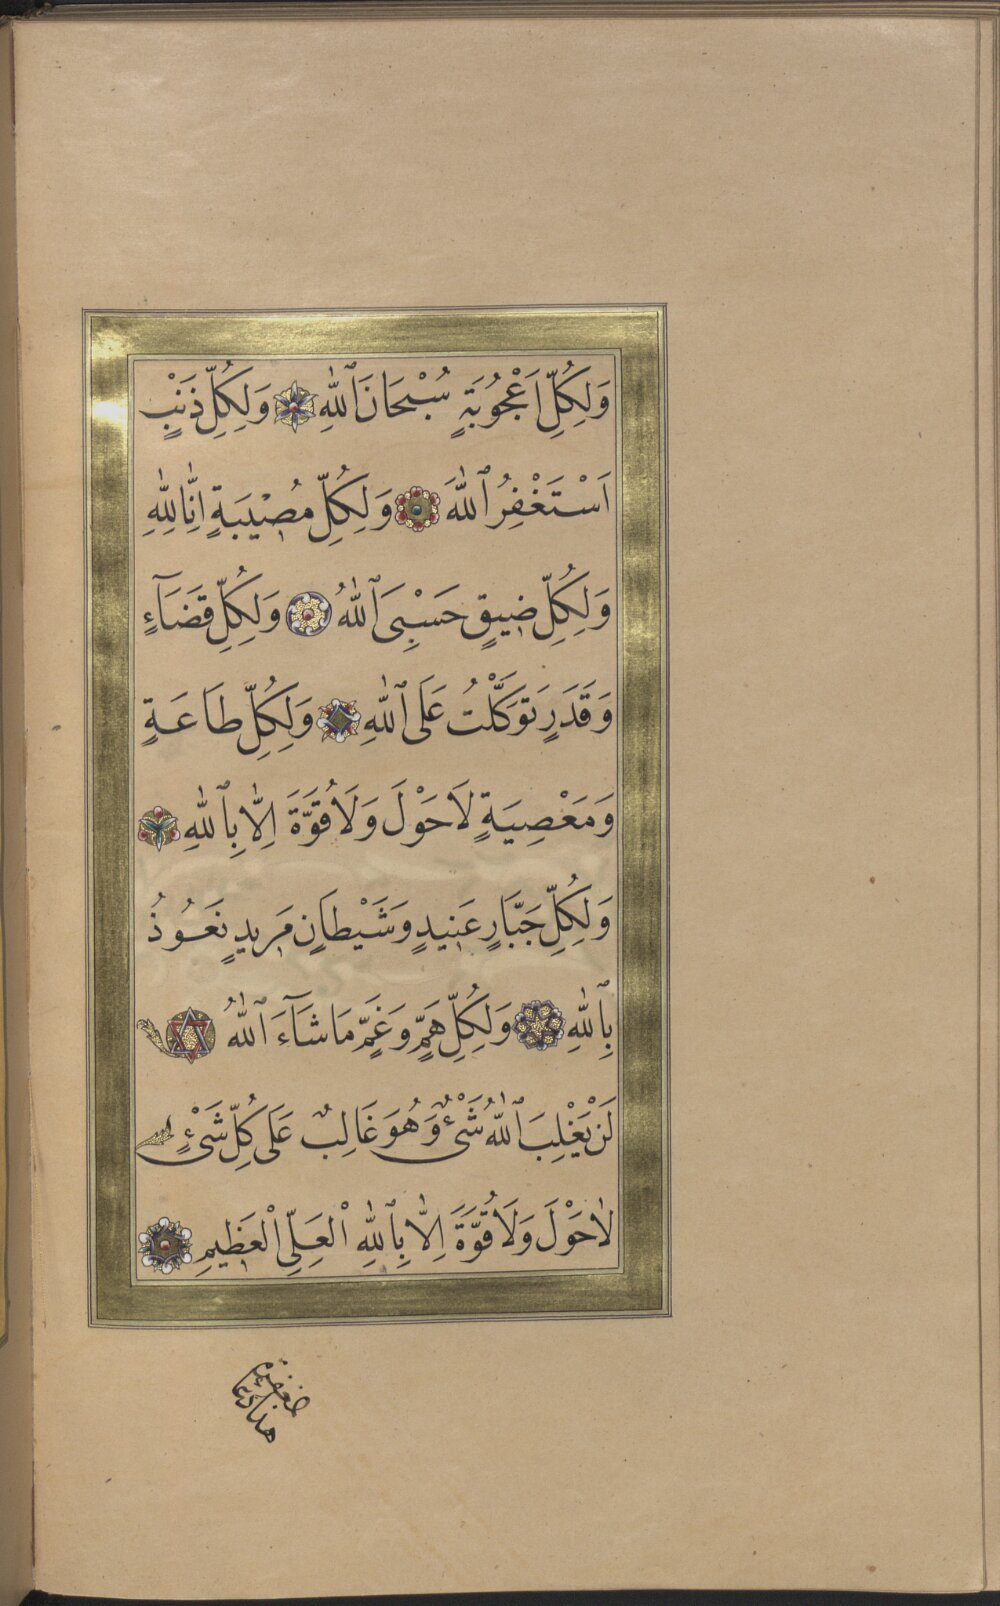 وَلِكُلِّ اَعْجُوبَةٍ سُبْحَانَ ٱللّٰهِ وَلِكُلِّ ذَنْبٍ
اَسْتَغْفِرُ ٱللّٰهَ وَلِكُلِّ مُصِيْبَةٍ اِنَّا لِلّٰهِ
وَلِكُلِّ ضِيقٍ حَسْبِىَ ٱللّٰهُ وَلِكُلِّ قَضَآءٍ
وَقَدَرٍ تَوَكَّلْتُ عَلَى ٱللّٰهِ وَلِكُلِّ طَاعَةٍ
وَمَعْصِيَةٍ لَاحَوْلَ وَلَاقُوَّةَ اِلَّا بِٱللّٰهِ
وَلِكُلِّ جَبَّارٍ عَنِيدٍ وَشَيْطَانٍ مَرِيدٍ نَعُوذُ
بِٱللّٰهِ وَلِكُلِّ هَمٍّ وَغَمٍّ مَاشَآءَ ٱللّٰهُ
لَنْ يَغْلِبَ ٱللّٰهُ شَىْءٌ وَهُوَ غَالِبٌ عَلَى كُلِّ شَىْءٍ
لَاحَوْلَ وَلَاقُوَّةَ اِلَّا بِٱللّٰهِ الْعَلِىِّ الْعَظِيمِ